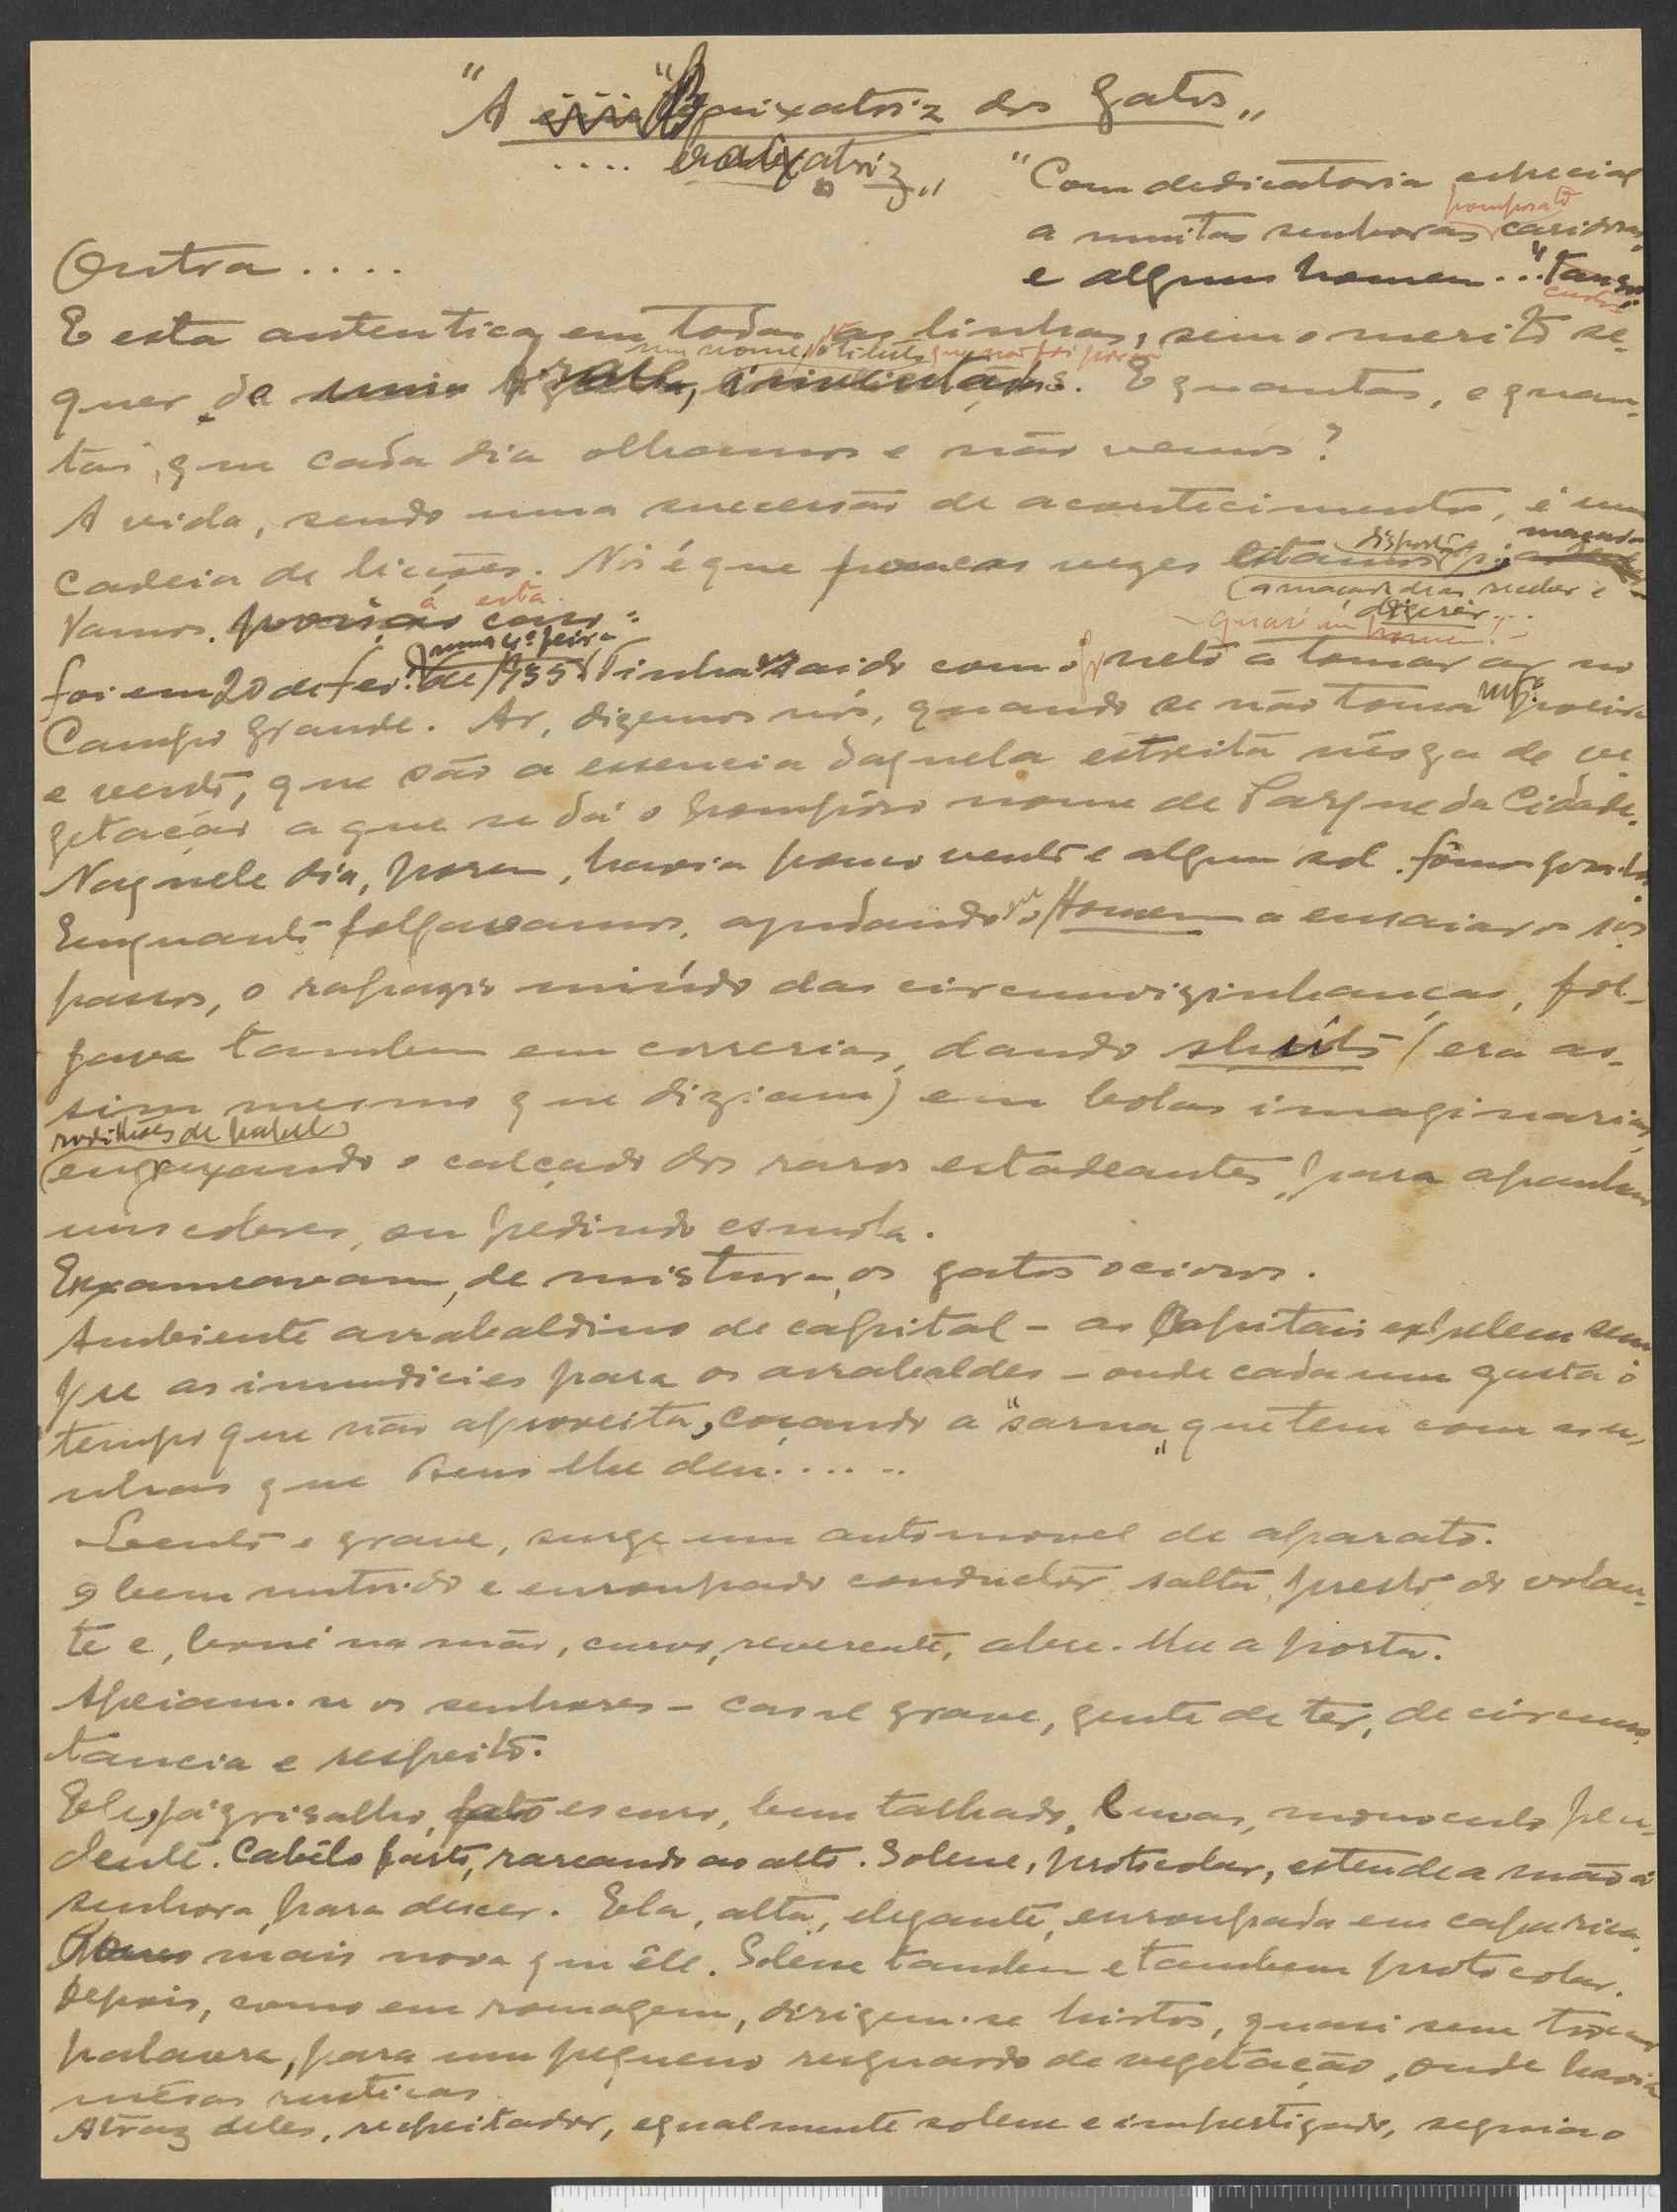 "A Baixatriz dos gatos„
.... baixatriz„
"Com dedicatoria especial
a muitas senhoras caridosas,
e alguns homens..."
Outra....
E esta autentica em todas as linhas, sem o merito se-
quer de E quantas, e quan-
tas, que cada dia olhamos e não vemos?
A vida, sendo uma sucessão de acontecimentos, é uma
maçada
dispostos
cadeia de lições. Nós é que poucas vezes estamos
a maçar-de as receber e
digerir...
Vamos. á esta
numa 4ª feira
- quasi um homem! -
foi em 20 de fev.º de 1935. Tinha saido com o neto a tomar ar no
Campo grande. Ar, dizemos nós, quando se não toma poeira
e vento, que são a essencia daquela estreita nésga de ve-
getação a que se dá o pomposo nome de Parque da Cidade.
Naquele dia, porem, havia pouco vento e algum sol.
Enquanto folgavamos, ajudando o Homem a ensaiar os 1os
passos, o rapazio miúdo das circumvizinhanças, fol-
gava tambem em correrias, dando shúts (era as-
sim mesmo que diziam) em bolas imaginarias,
rodilhões de papel
engraxando o calçado dos raros estadeantes, para apanhar
uns cobres, ou pedindo esmola.
Enxameavam, de mistura, os gatos ociosos.
Ambiente arrabaldino de capital - as Capitais expelem sem-
pre as imundicies para os arrabaldes - onde cada um gasta o
tempo que não aproveita, coçando a "sarna„ que tem com as u-
nhas que Deus lhe deu......
Lento e grave, surge um automovel de aparato.
O bem nutrido e enroupado conductor salta, presto, do volan-
te e, boné na mão, curvo, reverente, abre-lhe a porta.
Apeiam-se os senhores - casal grave, gente de ter, de circuns-
tancia e respeito.
Ele, já grisalho, fato escuro, bem talhado, luvas, monoculo pen-
dente. Cabêlo farto, rareando ao alto. Solene, protocolar, estende a mão á
senhora, para descer. Ela, alta, elegante, enroupada em capa rica,
mais nova que êle. Solene tambem e tambem protocolar.
Depois, como em romagem, dirigem-se hirtos, quasi sem trocar
palavra, para um pequeno resguardo de vegetação, onde havia
mesas rusticas
Atraz deles, respeitador, egualmente solene e impertigado, seguia o